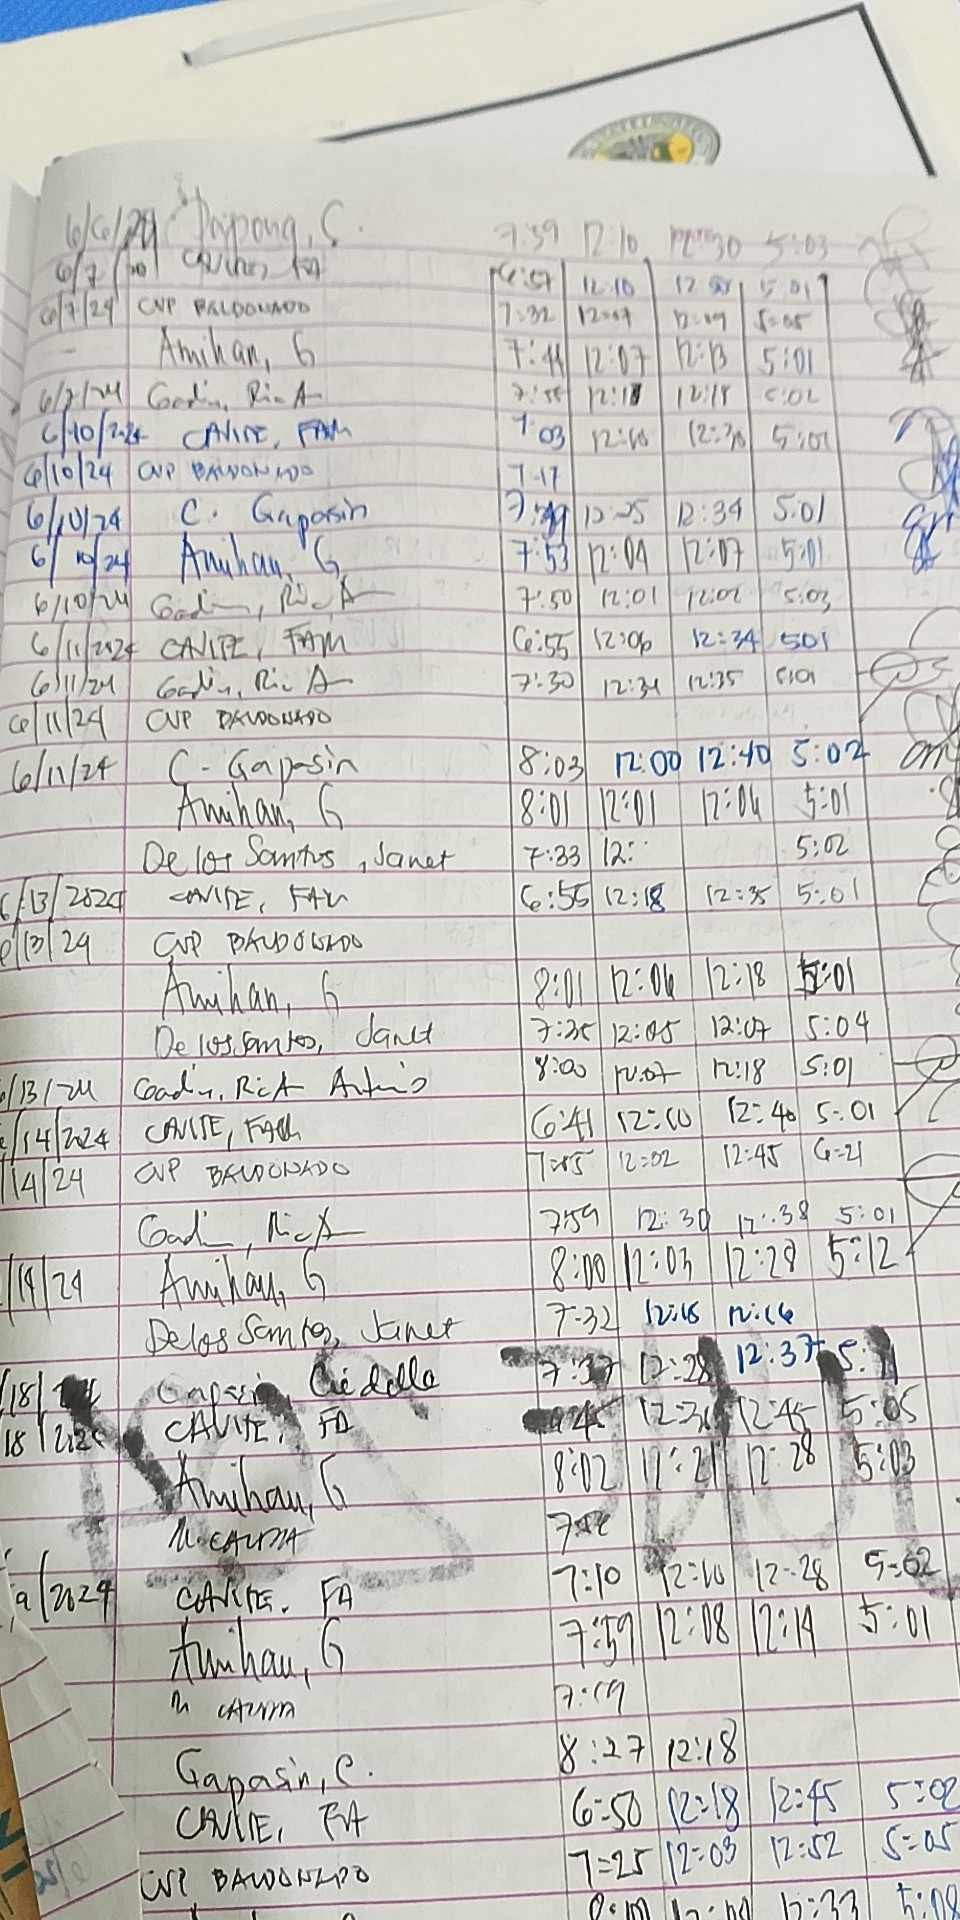 6/6/24 C. 7:39 12:10 12:30 5:03
6/7 6:57 12:10 5:01
6/7/24 CVP BALDONADO 7:32 12:07 12:09 5:05
Amihan, G 7:44 12:07 12:13 5:01
6/7/24 Gadin, Ric A 12:18 5:02
6/10/2024 CAVITE, FAM 7:03 12:10 12:30 5:02
6/10/24 CVP BALDONADO 7:17
6/10/24 C. Gapasin 7:49 12:25 12:34 5:01
6/10/24 Amihan, G 7:53 12:04 12:07 5:01
6/10/24 Gadin, Ric A 7:50 12:01 12:02 5:03
6/11/2024 CAVITE, FAM 6:55 12:06 12:34 501
6/11/24 Gadin, Ric A 7:30 12:34 12:35 5:01
6/11/24 CVP BALDONADO
6/11/24 C. Gapasin 8:03 12:00 12:40 5:02
Amihan, G 8:01 12:01 12:04 5:01
De los Santos, Janet 7:33 12: 5:02
6/13/2024 CAVITE, FAM 6:55 12:18 12:35 5:01
6/13/24 CVP BALDONADO
Amihan, G 8:01 12:06 12:18 5:01
De los Santos, Janet 7:35 12:05 12:07 5:04
6/13/24 Gadin, Ric A 8:00 12:07 12:18 5:01
/14/2024 CAVITE, FAM 6:41 12:10 12:40 5:01
/14/24 CVP BALDONADO 12:02 12:45 6:21
Gadin, Ric A 7:59 12:30 12:38 5:01
/14/24 Amihan, G 8:00 12:03 12:28 5:12
De los Santos, Janet 7:32 12:15 12:16
/18/ Gapasin, 7:37 12:28 12:37
18/2024 CAVITE, FA 12:45 5:05
Amihan, G 8:02 12:21 12:28 5:03
/2024 CAVITE, FA 7:10 12:10 12:28 5:02
Amihan, G 7:59 12:08 12:14 5:01
7:19
Gapasin, C. 8:27 12:18
CAVITE, FA 6:50 12:18 12:45 5:02
CVP BALDONADO 7:25 12:03 12:52 5:05
12:33 5:08